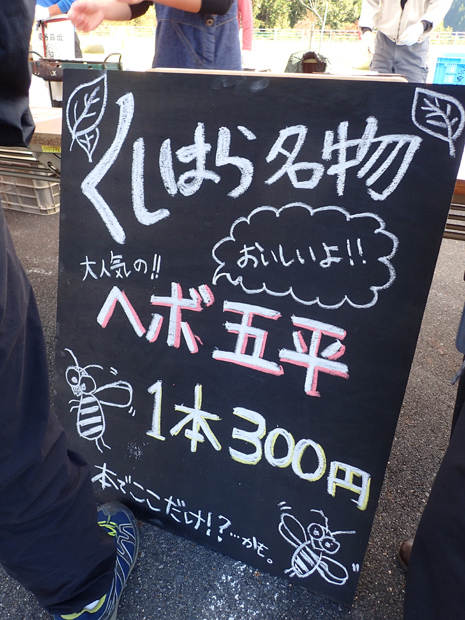 くしはら名物
おいしいよ!!
大人気の!!
ヘボ五平
1本300円
本でここだけ!?…かも。